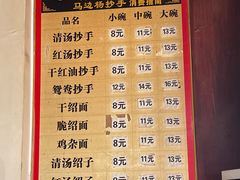 马边杨抄手 消费指南
品名 小碗 中碗 大碗
清汤抄手 8元 11元 13元
红汤抄手 8元 11元 13元
干红油抄手 8元 11元 13元
鸳鸯抄手 12元 14元 16元
干绍面 8元 11元 13元
脆绍面 8元 11元 13元
鸡杂面 8元 11元 13元
清汤绍子 8元 11元 13元